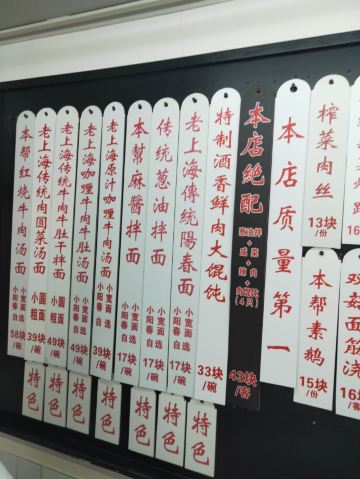 本帮红烧牛肉汤面
小宽面
小阳春
自选
58块/碗
老上海传统牛肉圆菜汤面
小圆
粗面
39块/碗
老上海传统牛肉牛肚干拌面
小圆
粗面
49块/碗
老上海咖喱牛肉牛肚汤面
小宽面
小阳春
自选
49块/碗
老上海原汁咖喱牛肉汤面
小宽面
小阳春
自选
39块/碗
本幫麻醬拌面
小宽面
小阳春
自选
17块/碗
传统葱油拌面
小宽面
小阳春
自选
17块/碗
老上海傳統陽春面
小宽面
小阳春
自选
17块/碗
特制酒香鲜肉大馄饨
33块/碗
本店絕配
葱油拌
+
咸菜
+
辣肉
+
肉馄饨
(4只)
43块/客
本店质量第一
榨菜肉丝
13块/份
本帮素鹅
15块/份
双菇面筋浇
16块/客
特色
特色
特色
特色
特色
特色
特色
特色